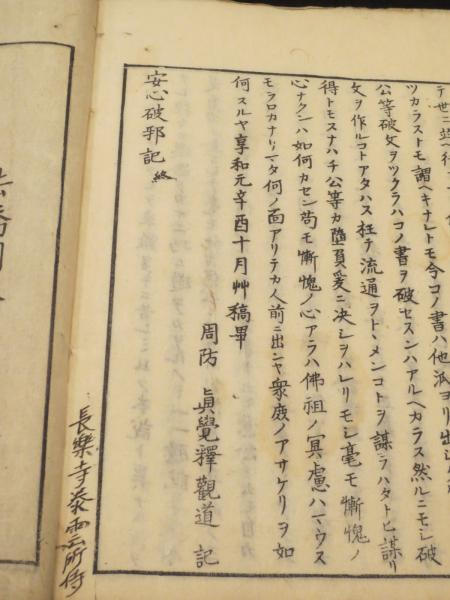 ツカラストモ謂ヘキナレトモ今コノ書ハ他派ヨリ出
公等破文ヲツクラハコノ書ヲ破セスンハアルヘカラス然ルニモシ破
文ヲ作ルコトアタハス枉テ流通ヲトヽメンコトヲ謀ラハタトヒ謀リ
得トモスナハチ公等カ堕負爰ニ決シヲハレリモシ毫モ慚愧ノ
心ナクンハ如何カセン苟モ慚愧ノ心アラハ佛祖ノ冥慮ハマウス
モヲロカナリマタ何ノ面アリテカ人前ニ出ンヤ衆庶ノアサケリヲ如
何スルヤ享和元辛酉十月艸稿畢
周防 眞覺釋觀道 記
安心破邪記 終
長樂寺泰雲所侍